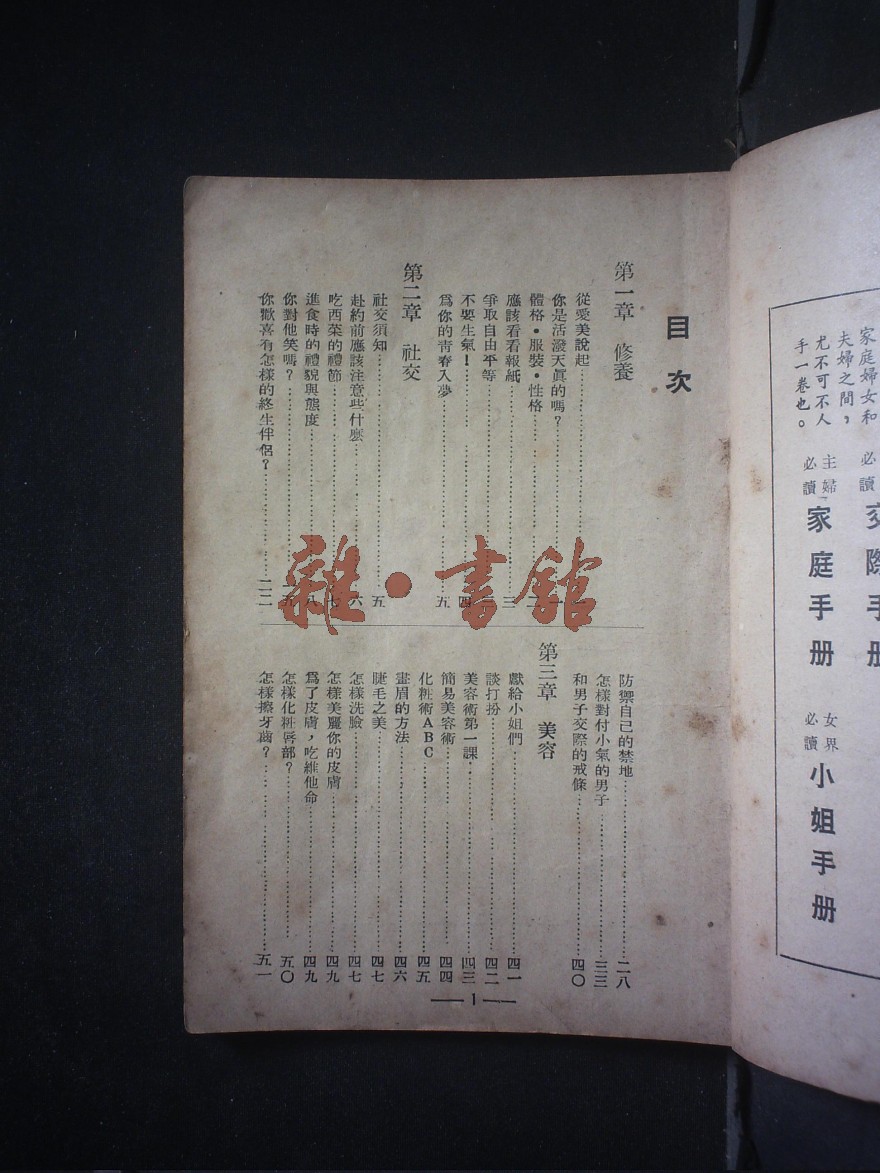 家庭婦女和
夫婦之間，
尤不可不人
手一卷也。
主婦
必讀
家庭手册
女界
必讀
小姐手册
目次
第一章 修養
從愛美說起
你是活潑天眞的嗎？
體格·服裝·性格
應該看看報紙 三
爭取自由平等
不要生氣！ 四
爲你的青春入夢 五
第二章 社交
社交須知 五
赴約前應該注意些什麽 六
吃西菜的禮節 七
進食時的禮貌與態度 八
你對他笑嗎？
你歡喜有怎樣的終生伴侶？ 二二
防禦自己的禁地 二八
怎樣對付小氣的男子 三三
和男子交際的戒條 四〇
第三章 美容
獻給小姐們 四一
談打扮 四二
美容術第一課 四三
簡易美容術 四四
化粧術ABC 四五
畫眉的方法 四六
睫毛之美 四七
怎樣洗臉 四七
怎樣美麗你的皮膚 四九
爲了皮膚，吃維他命 四九
怎樣化粧唇部？ 五〇
怎樣擦牙齒？ 五一
1
雜·書館